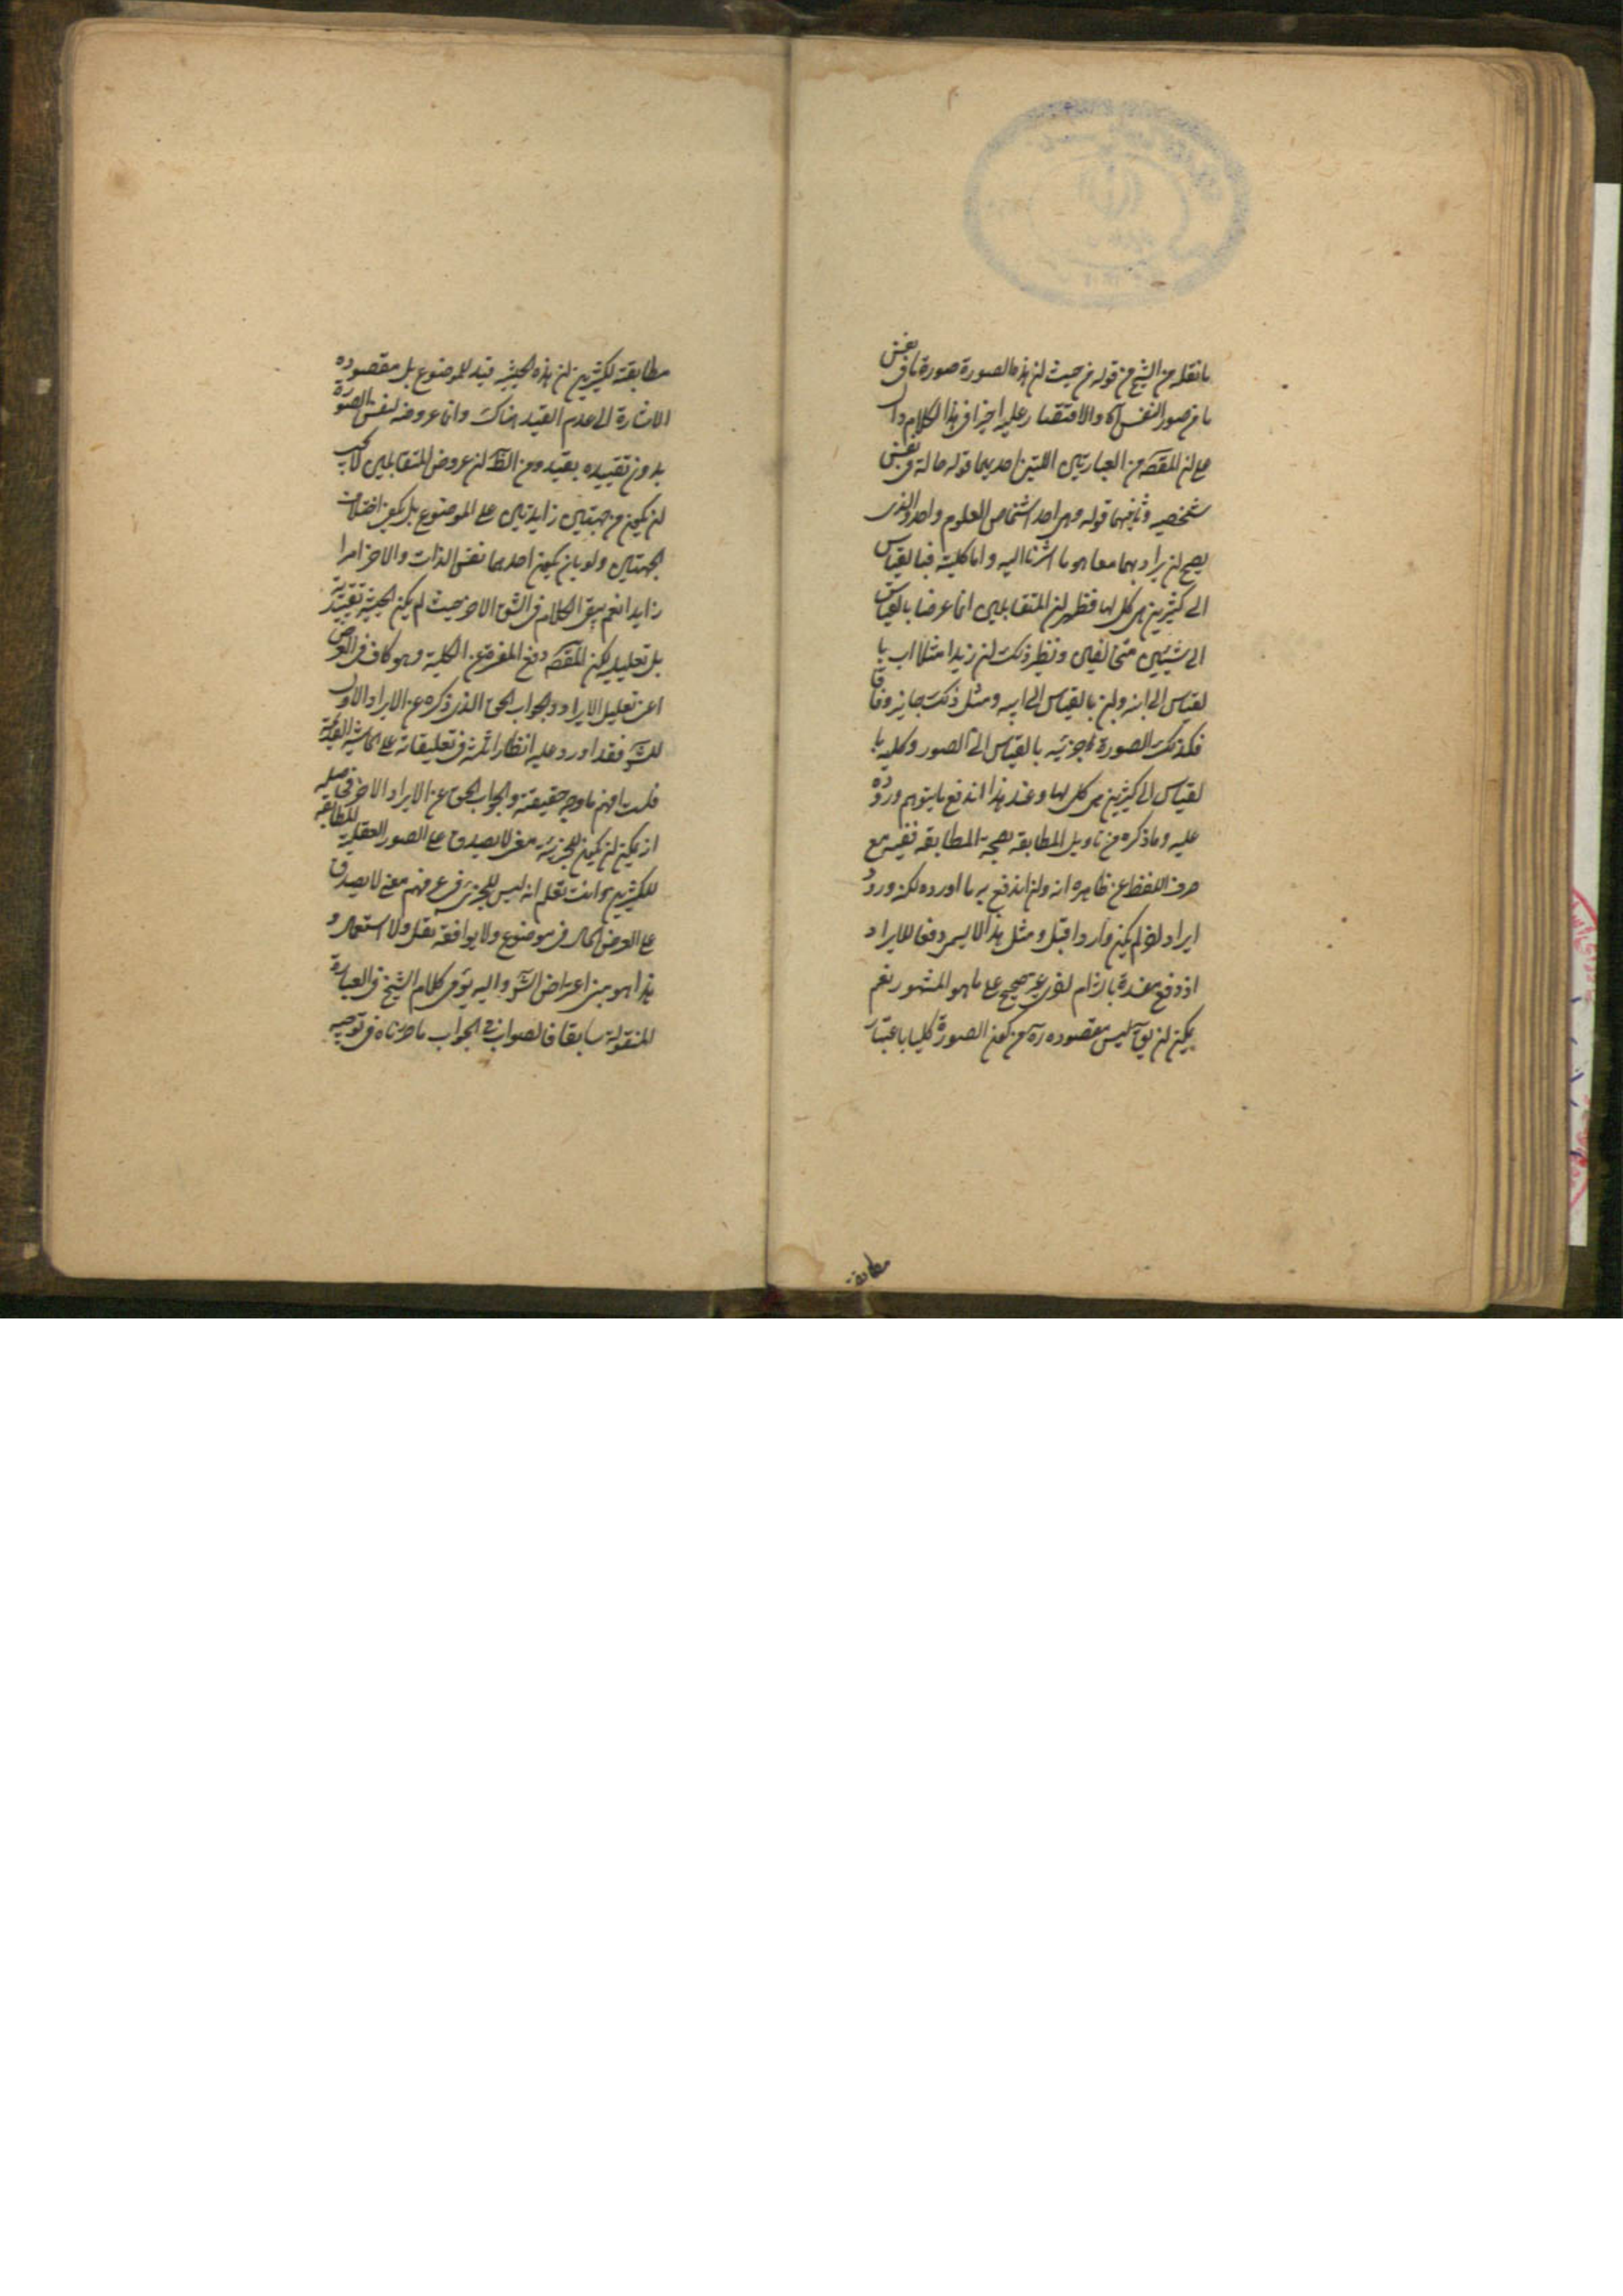 ما نقله من الشيخ من قوله من حيث ان هذه الصورة صورة ما فى نفس
ما من صور النفس آه والاقتصار عليه اخيرا فى هذا الكلام دال
على ان المقصـ من العبارتين اللتين احديهما قوله حالة فى نفس
شخصيه وثانيهما قوله وهى احد اشخاص العلوم واحد والذى
يصح ان يراد بهما معا هو ما اشرنا اليه واما كلية فبالقياس
الى كثيرين هى كل لها فظهر ان المتقابلين انما عرضا بالقياس
الى شيئين متخالفين ونظير ذلك ان زيدا مثلا اب با
لقياس الى ابنه وابن بالقياس الى ابيه ومثل ذلك جايز وفاقا
فكذلك الصورة جزئيه بالقياس الى الصور وكليه با
لقياس الى كثيرين هى كل لها وعند هذا اندفع ما يتوهم وروده
عليه وما ذكره من تاويل المطابقه بصحة المطابقه ففيه مع
صرف اللفظ عن ظاهره انه وان اندفع به ما اورده لكنه ورود
ايراد لم يكن واردا قبل ومثل هذا لا يسمى دفعا للايراد
اذ دفع مفسدة بالتزام اخرى غير صحيح على ما هو المشهور نعم
يمكن ان يقـ ليس مقصوده ره من كون الصورة كليا باعتبار
مطابقة
مطابقة لكثيرين ان هذه الحيثيه قيد للموضوع بل مقصوده
الاشارة الى عدم القيد هناك وانما عروضه لنفس الصورة
بدون تقييده بقيد ومن الظـ ان عروض المتقابلين لا يجب
ان يكون من جهتين زايدتين على الموضوع بل يكفى اختلاف
الجهتين ولو بان يكون احديهما نفس الذات والاخر امرا
زايدا نعم يبقى الكلام فى الشق الاخر حيث لم يكن الحيثية تقييدية
بل تعليلية لكن المقصـ دفع المفر عن الكلية وهو كاف فى الغرض
اعنى تعليل الايراد والجواب الحق الذى ذكره عن الايراد الاول
للشـ فقد اورد عليه انظار ثلثة فى تعليقاته على الحاشية القديمة
قلت افهم ما وجه حقيقته والجواب الحق عن الايراد الاخر
اذ يمكن ان يكون للجزئية معنى لا يصدق على الصور العقلية المطابقه
للكثيرين وانت تعلم انه ليس للجزئى فى عرفهم معنى لا يصدق
على العرض الحال فى موضوع ولا يوافقه نقل ولا استعمال و
هذا هو مبنى اعتراض الشـ واليه يؤمى كلام الشيخ فى العبارة
المنقولة سابقا فالصواب فى الجواب ما حررناه فى توجيه